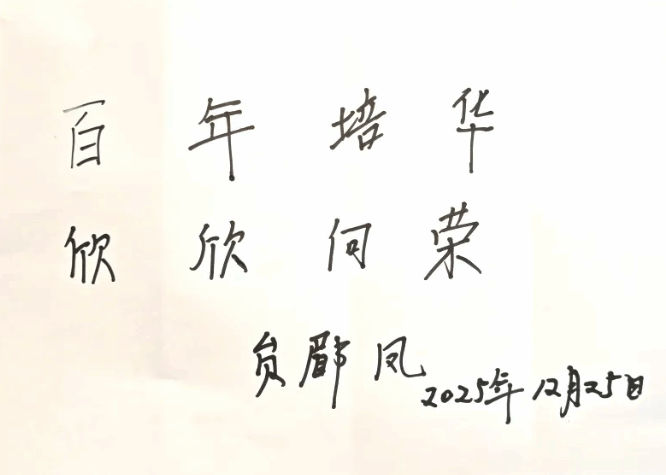 百年培华
欣欣向荣
贠郿凤
2025年12月25日